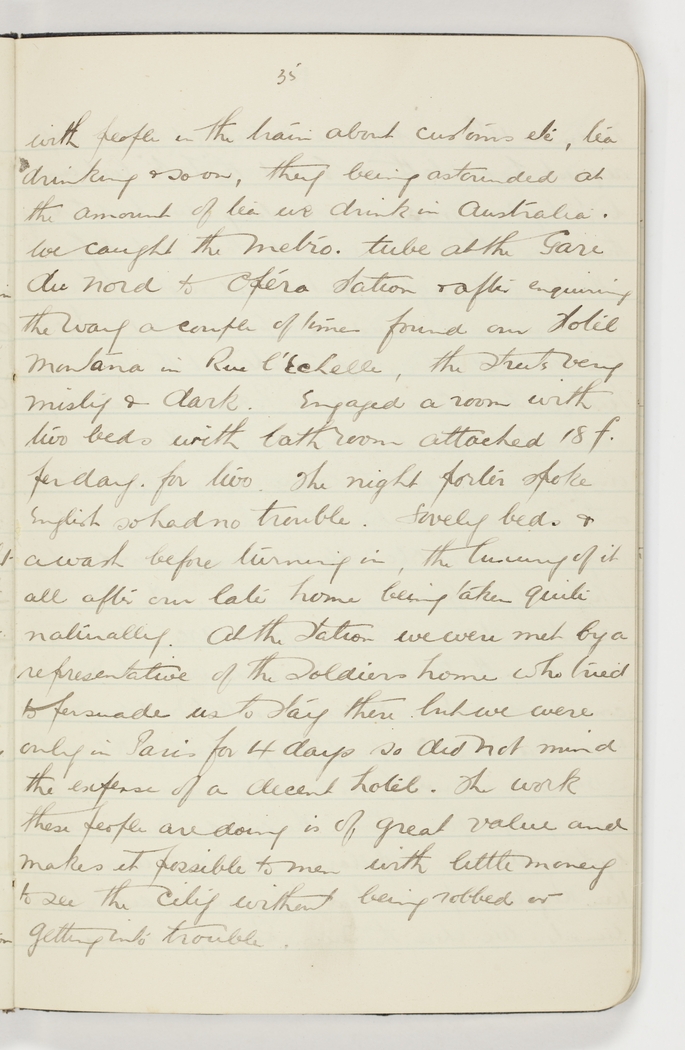 35
with people in the train about customs etc, tea
drinking & so on, they being astounded at
the amount of tea we drink in Australia.
We caught the Metro. tube at the Gare
du Nord to Opéra Station & after enquiring
the way a couple of times found our Hotel
Montana in Rue l'Echelle, the streets being
misty & dark. Engaged a room with
two beds with bath room attached 18 f.
per day. for two. The night porter spoke
English so had no trouble. Lovely beds &
a wash before turning in, the luxury of it
all after our late home being taken quite
naturally. At the Station we were met by a
representative of the Soldiers home who tried
to persuade us to stay there but we were
only in Paris for 4 days so did not mind
the expense of a decent hotel. The work
these people are doing is of great value and
makes it possible to men with little money
to see the city without being robbed or
getting into trouble.